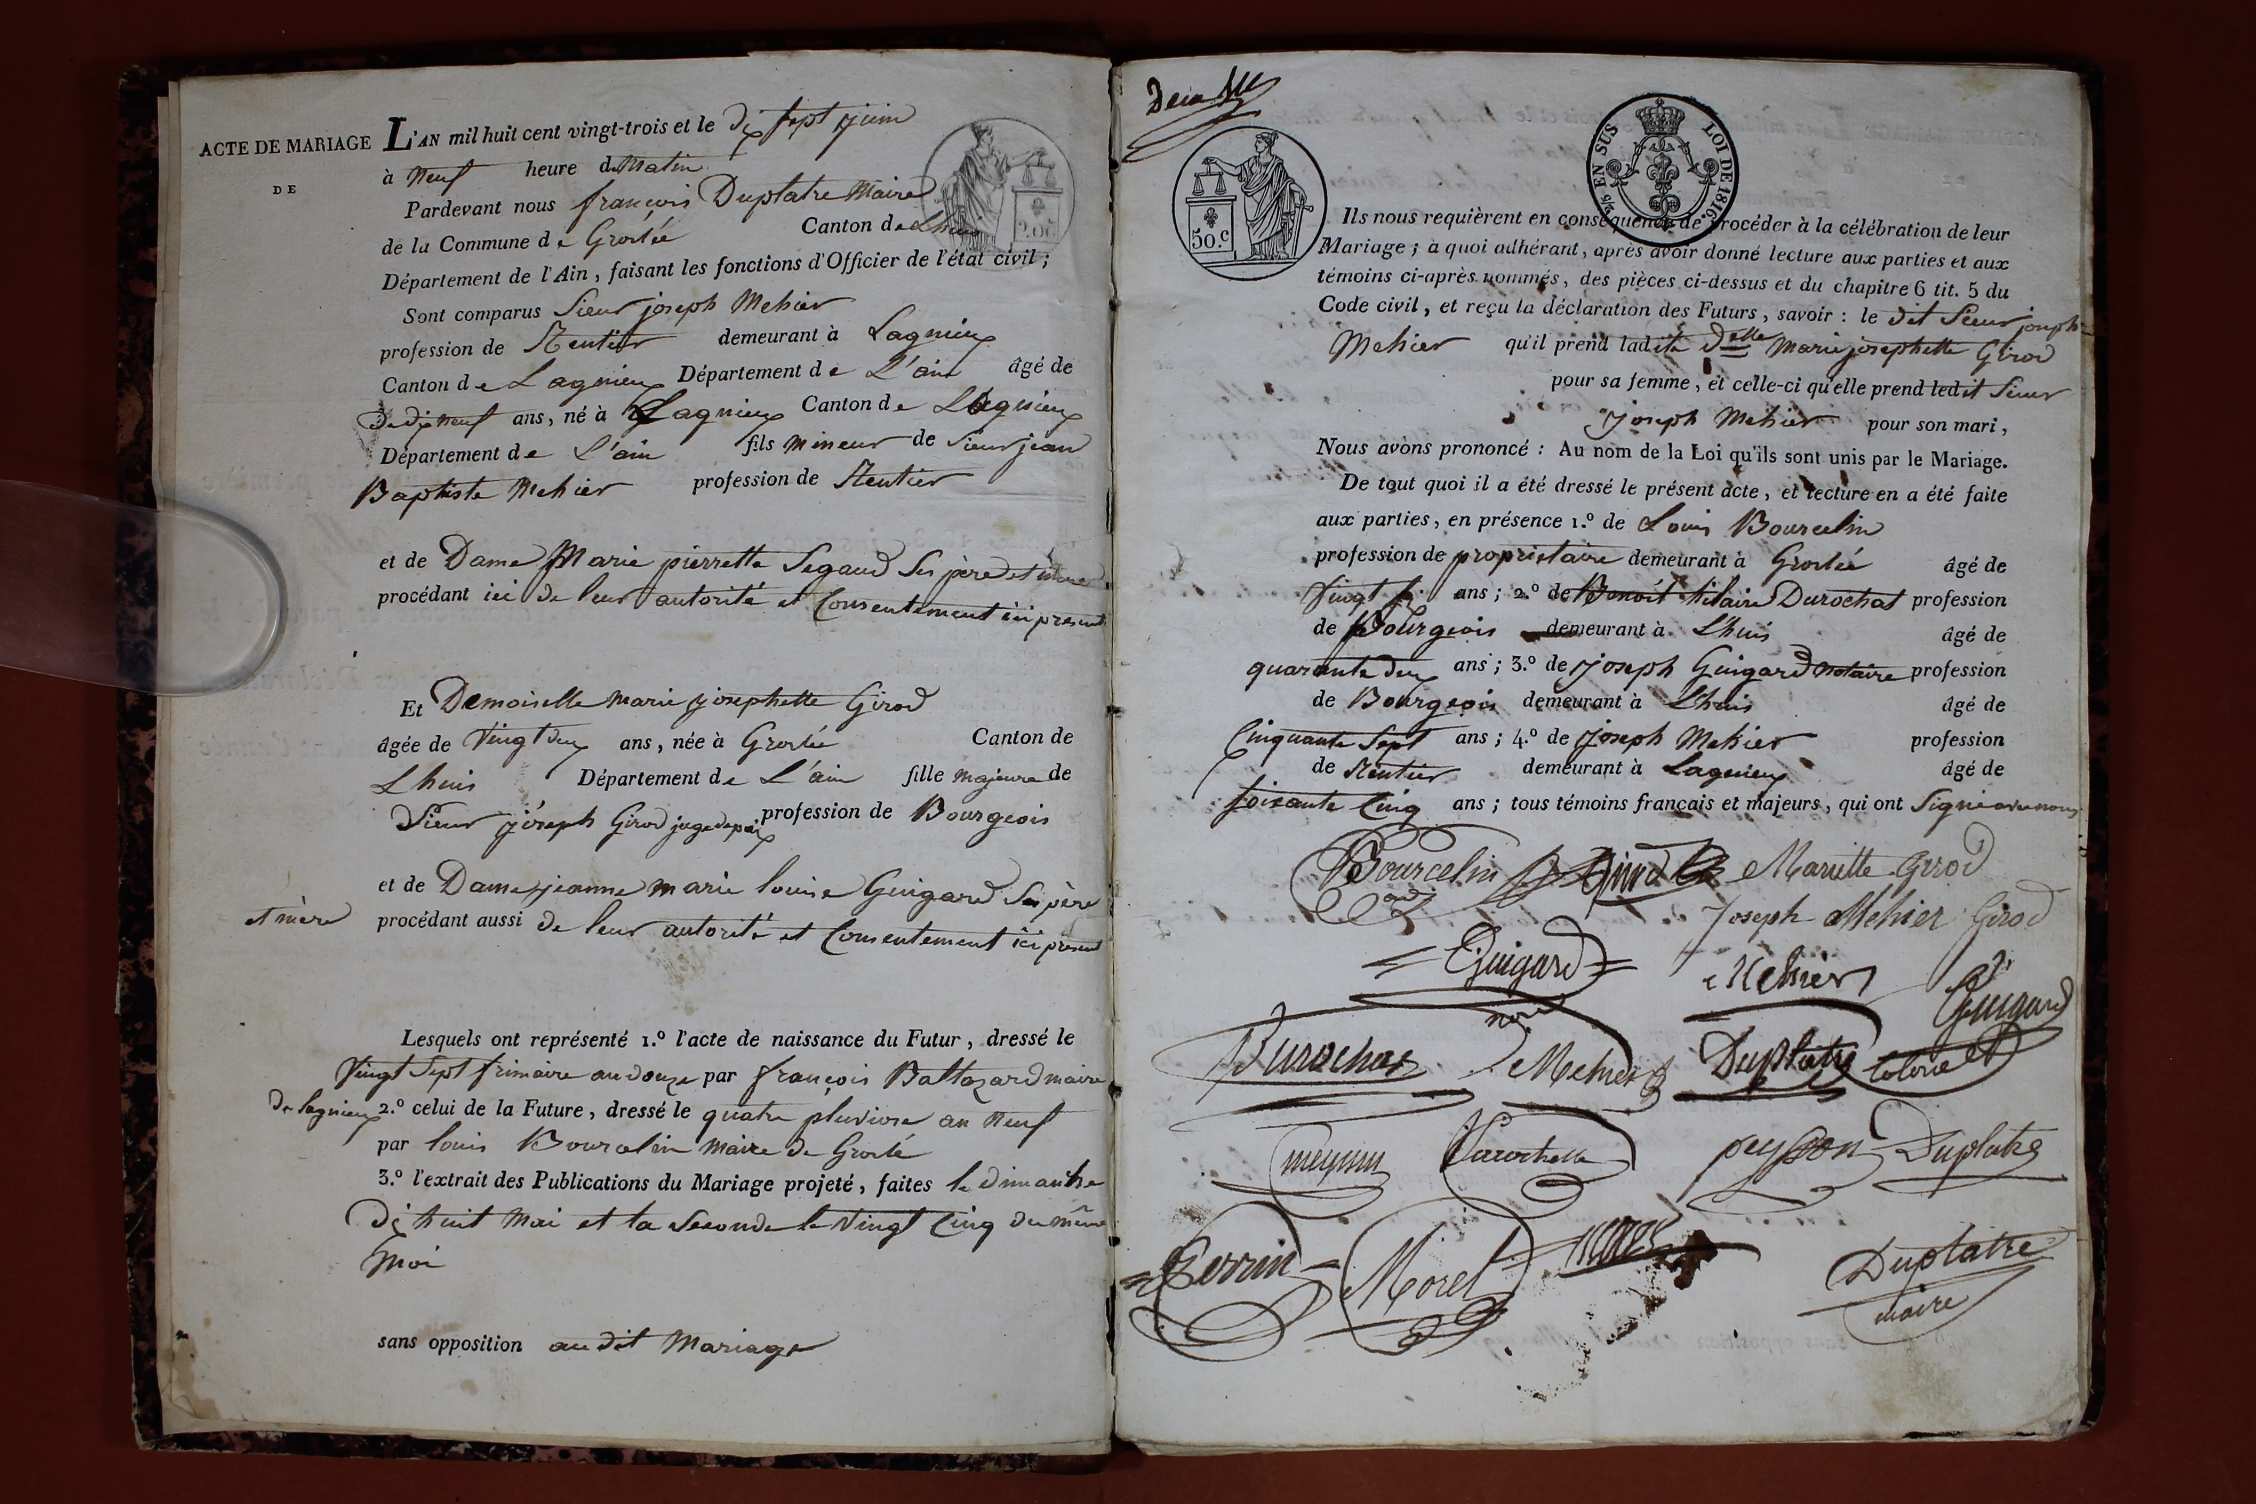 ACTE DE MARIAGE
DE
L'AN mil huit cent vingt-trois et le dix sept juin
à Neuf heure du Matin
Pardevant nous françois Duplatre Maire
de la Commune de Groslée Canton de Lhuis
Département de l'Ain, faisant les fonctions d'Officier de l'état civil;
Sont comparus Sieur joseph Mehier
profession de Rentier demeurant à Lagnieux
Canton de Lagnieux Département de L'ain âgé de
De dix neuf ans, né à Lagnieux Canton de Lagnieux
Département de L'ain fils Mineur de Sieur jean
Baptiste Mehier profession de Rentier
et de Dame Marie pierrette Segaud Ses père et mère
procédant ici de leur autorité et Consentement ici présent
Et Demoiselle marie josephette Girod
âgée de Vingt deux ans, née à Groslée Canton de
Lhuis Département de L'ain fille majeure de
Sieur joseph Girod juge de paix profession de Bourgeois
et de Dame jeanne marie louise Guigard Ses père
et mère
procédant aussi de leur autorité et Consentement ici présent
Lesquels ont représenté 1.º l'acte de naissance du Futur, dressé le
Vingt Sept frimaire an douze par françois Baltazard maire
de Lagnieux
2.º celui de la Future, dressé le quatre pluviose an Neuf
par louis Bourcelin maire de Groslé
3.º l'extrait des Publications du Mariage projeté, faites le dimanche
dix huit Mai et la Seconde le Vingt Cinq du même
Moi
sans opposition au dit Mariage
2.00
50.C
5/10 EN SUS
LOI DE 1816.
Ils nous requièrent en conséquence de procéder à la célébration de leur
Mariage; à quoi adhérant, après avoir donné lecture aux parties et aux
témoins ci-après nommés, des pièces ci-dessus et du chapitre 6 tit. 5 du
Code civil, et reçu la déclaration des Futurs, savoir: le dit Sieur joseph
Mehier qu'il prend ladite Delle Marie josephette Girod
pour sa femme, et celle-ci qu'elle prend ledit Sieur
joseph Mehier pour son mari,
Nous avons prononcé: Au nom de la Loi qu'ils sont unis par le Mariage.
De tout quoi il a été dressé le présent acte, et lecture en a été faite
aux parties, en présence 1.º de Louis Bourcelin
profession de propriétaire demeurant à Groslée âgé de
Vingt ans; 2.º de Benoît hilaire Durochat profession
de Bourgeois demeurant à Lhuis âgé de
quarante deux ans; 3.º de joseph Guigard notaire profession
de Bourgeois demeurant à Lhuis âgé de
Cinquante Sept ans; 4.º de joseph Mehier profession
de Rentier demeurant à Lagnieux âgé de
Soixante Cinq ans; tous témoins français et majeurs, qui ont Signé avec nous
Bourcelin Girod Mariette Girod
Joseph Mehier Girod
Guigard
Mehier
Guigard
Durochat Mehier Duplatre
peysson Duplatre
Perrin Morel
Duplatre
maire